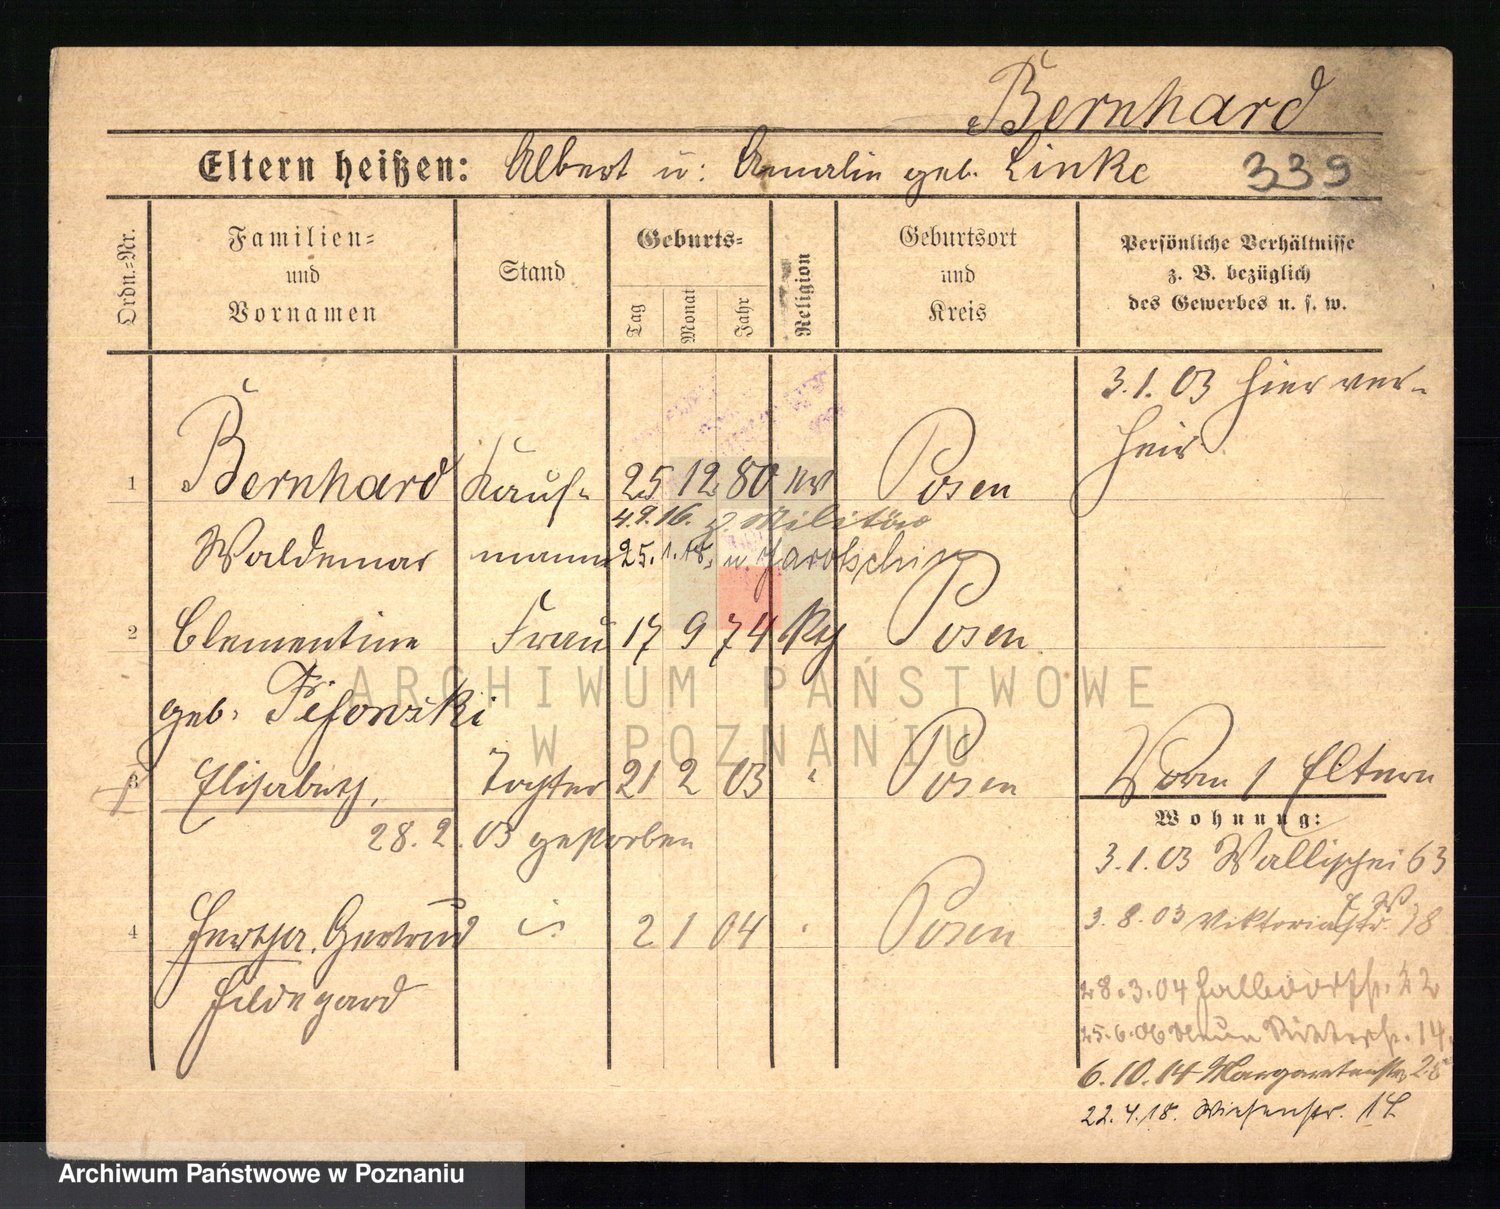 Bernhard
Eltern heißen: Albert u: Amalie geb. Linke 339
Ordn.=Nr.
Familien=
und
Vornamen
Stand
Geburts=
Tag
Monat
Jahr
Religion
Geburtsort
und
Kreis
Persönliche Verhältnisse
z. B. bezüglich
des Gewerbes u. s. w.
3.1.03 hier ver-
heir
1 Bernhard Kauf- 25 12 80 Posen
4.9.16. z. Militär
Waldemar mann 25.1.18. v. Jarotschin
2 Clementine Frau 17 9 74 Posen
geb.
3 Elisabeth, Tochter 21 2 03 " Posen
28.2.03 gestorben
4 Hertha Gertrud 2 1 04 Posen
Hildegard
Eltern
Wohnung:
3.1.03 Wallischei 63
3.8.03 Viktoriastr. 18
28.3.04 Halbdorfstr. 22
25.6.06 Neue Ritterstr. 14
6.10.14 Margaretenstr 28
22.4.18. Wiesenstr. 14
ARCHIWUM PAŃSTWOWE
W POZNANIU
Archiwum Państwowe w Poznaniu